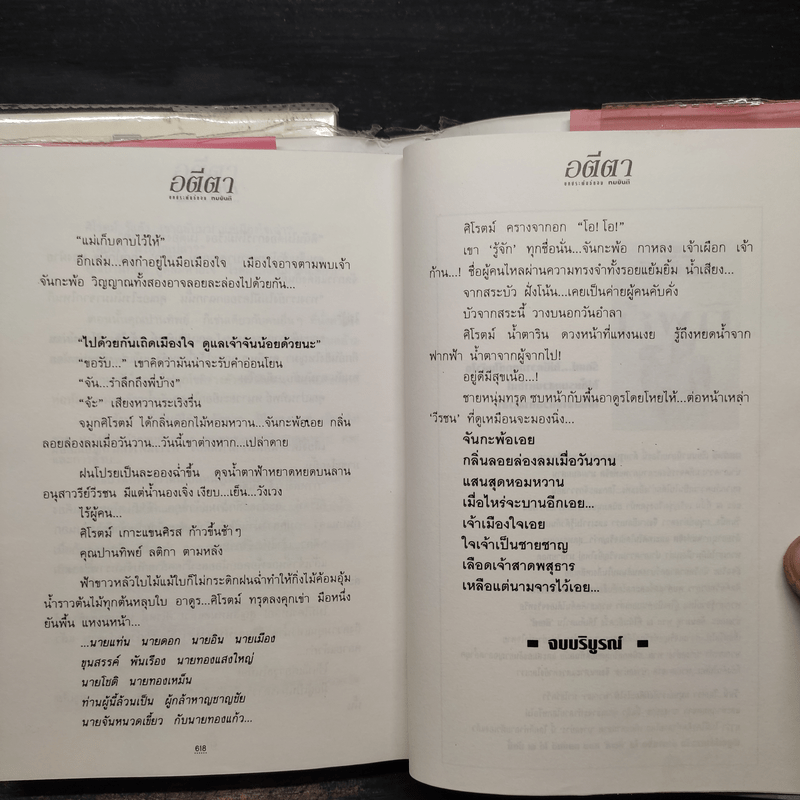 อตีตา
บทประพันธ์ของ ทมยันตี
"แม่เก็บดาบไว้ให้"
อีกเล่ม...คงกำอยู่ในมือเมืองใจ เมืองใจอาจตามพบเจ้า
จันกะพ้อ วิญญาณทั้งสองอาจลอยละล่องไปด้วยกัน...
"ไปด้วยกันเถิดเมืองใจ ดูแลเจ้าจันน้อยด้วยนะ"
"ขอรับ..." เขาคิดว่ามันน่าจะรับคำอ่อนโยน
"จัน...รำลึกถึงพี่บ้าง"
"จ้ะ" เสียงหวานระเริงรื่น
จมูกศิโรตม์ ได้กลิ่นดอกไม้หอมหวาน...จันกะพ้อเอย กลิ่น
ลอยล่องลมเมื่อวันวาน...วันนี้เขาต่างหาก...เปล่าดาย
ฝนโปรยเป็นละอองฉ่ำชื้น ดุจน้ำตาฟ้าหยาดหยดบนลาน
อนุสาวรีย์วีรชน มีแต่น้ำนองเจิ่ง เงียบ...เย็น...วังเวง
ไร้ผู้คน...
ศิโรตม์ เกาะแขนศิรส ก้าวขึ้นช้าๆ
คุณปานทิพย์ ลติกา ตามหลัง
ฟ้าขาวหลัวใบไม้แม้ใบก็ไม่กระดิกฝนฉ่ำทำให้กิ่งไม้ค้อมอุ้ม
น้ำราวต้นไม้ทุกต้นหลุบใบ อาดูร...ศิโรตม์ ทรุดลงคุกเข่า มือหนึ่ง
ยันพื้น แหงนหน้า...
...นายแท่น นายดอก นายอิน นายเมือง
ขุนสรรค์ พันเรือง นายทองแสงใหญ่
นายโชติ นายทองเหม็น
ท่านผู้นี้ล้วนเป็น ผู้กล้าหาญชาญชัย
นายจันหนวดเขี้ยว กับนายทองแก้ว...
618
อตีตา
บทประพันธ์ของ ทมยันตี
ศิโรตม์ ครางจากอก "โอ! โอ!"
เขา 'รู้จัก' ทุกชื่อนั่น...จันกะพ้อ กาหลง เจ้าเผือก เจ้า
ก้าน...! ชื่อผู้คนไหลผ่านความทรงจำทั้งรอยแย้มยิ้ม น้ำเสียง...
จากสระบัว ฝั่งโน้น...เคยเป็นค่ายผู้คนคับคั่ง
บัวจากสระนี้ วางบนอกวันอำลา
ศิโรตม์ น้ำตาริน ดวงหน้าที่แหงนเงย รู้ถึงหยดน้ำจาก
ฟากฟ้า น้ำตาจากผู้จากไป!
อยู่ดีมีสุขเน้อ...!
ชายหนุ่มทรุด ซบหน้ากับพื้นอาดูรโดยโหยไห้...ต่อหน้าเหล่า
'วีรชน' ที่ดูเหมือนจะมองนิ่ง...
จันกะพ้อเอย
กลิ่นลอยล่องลมเมื่อวันวาน
แสนสุดหอมหวาน
เมื่อไหร่จะบานอีกเอย...
เจ้าเมืองใจเอย
ใจเจ้าเป็นชายชาญ
เลือดเจ้าสาดพสุธาร
เหลือแต่นามจารไว้เอย...
จบบริบูรณ์